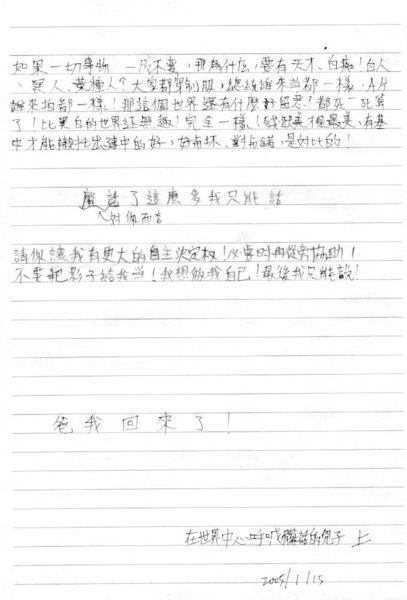 如果一切事物一成不變，那為什么，要有天才、白痴！白人
、黑人、黃種人？大家都穿制服，總統誰來當都一樣，A片
誰來拍都一樣！那這個世界還有什麼好留戀？都死一死算
了！比黑白的世界还無趣！完全一樣！殘缺美才裡最美，有基
中才能襯托出建中的好，好有坏、對有錯，是对比的！
廢話了這麼多我只能話
對你而言
請你讓我有更大的自主決定权！必要时再從旁協助！
不要把影子給我当！我想做我自己！最後我只能說！
爸我回來了！
在世界中心呼喊 廢話的兒子 上
2005/1/15